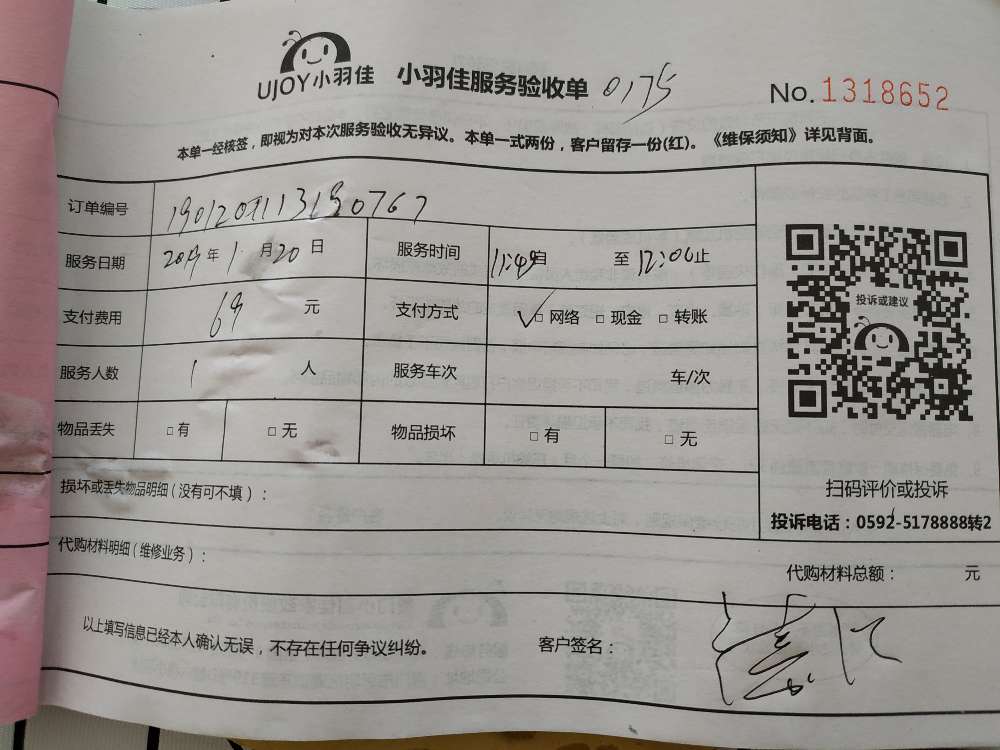 UJOY小羽佳 小羽佳服务验收单 0175 No. 1318652
本单一经核签，即视为对本次服务验收无异议。本单一式两份，客户留存一份(红)。《维保须知》详见背面。
订单编号
服务日期 2019年1月20日 服务时间 11:49自 至12:06止
支付费用 69 元 支付方式 ✓□ 网络 □ 现金 □ 转账
服务人数 1 人 服务车次 车/次
物品丢失 □ 有 □ 无 物品损坏 □ 有 □ 无
损坏或丢失物品明细（没有可不填）：
代购材料明细（维修业务）：
代购材料总额： 元
以上填写信息已经本人确认无误，不存在任何争议纠纷。 客户签名：
投诉或建议
扫码评价或投诉
投诉电话：0592-5178888转2